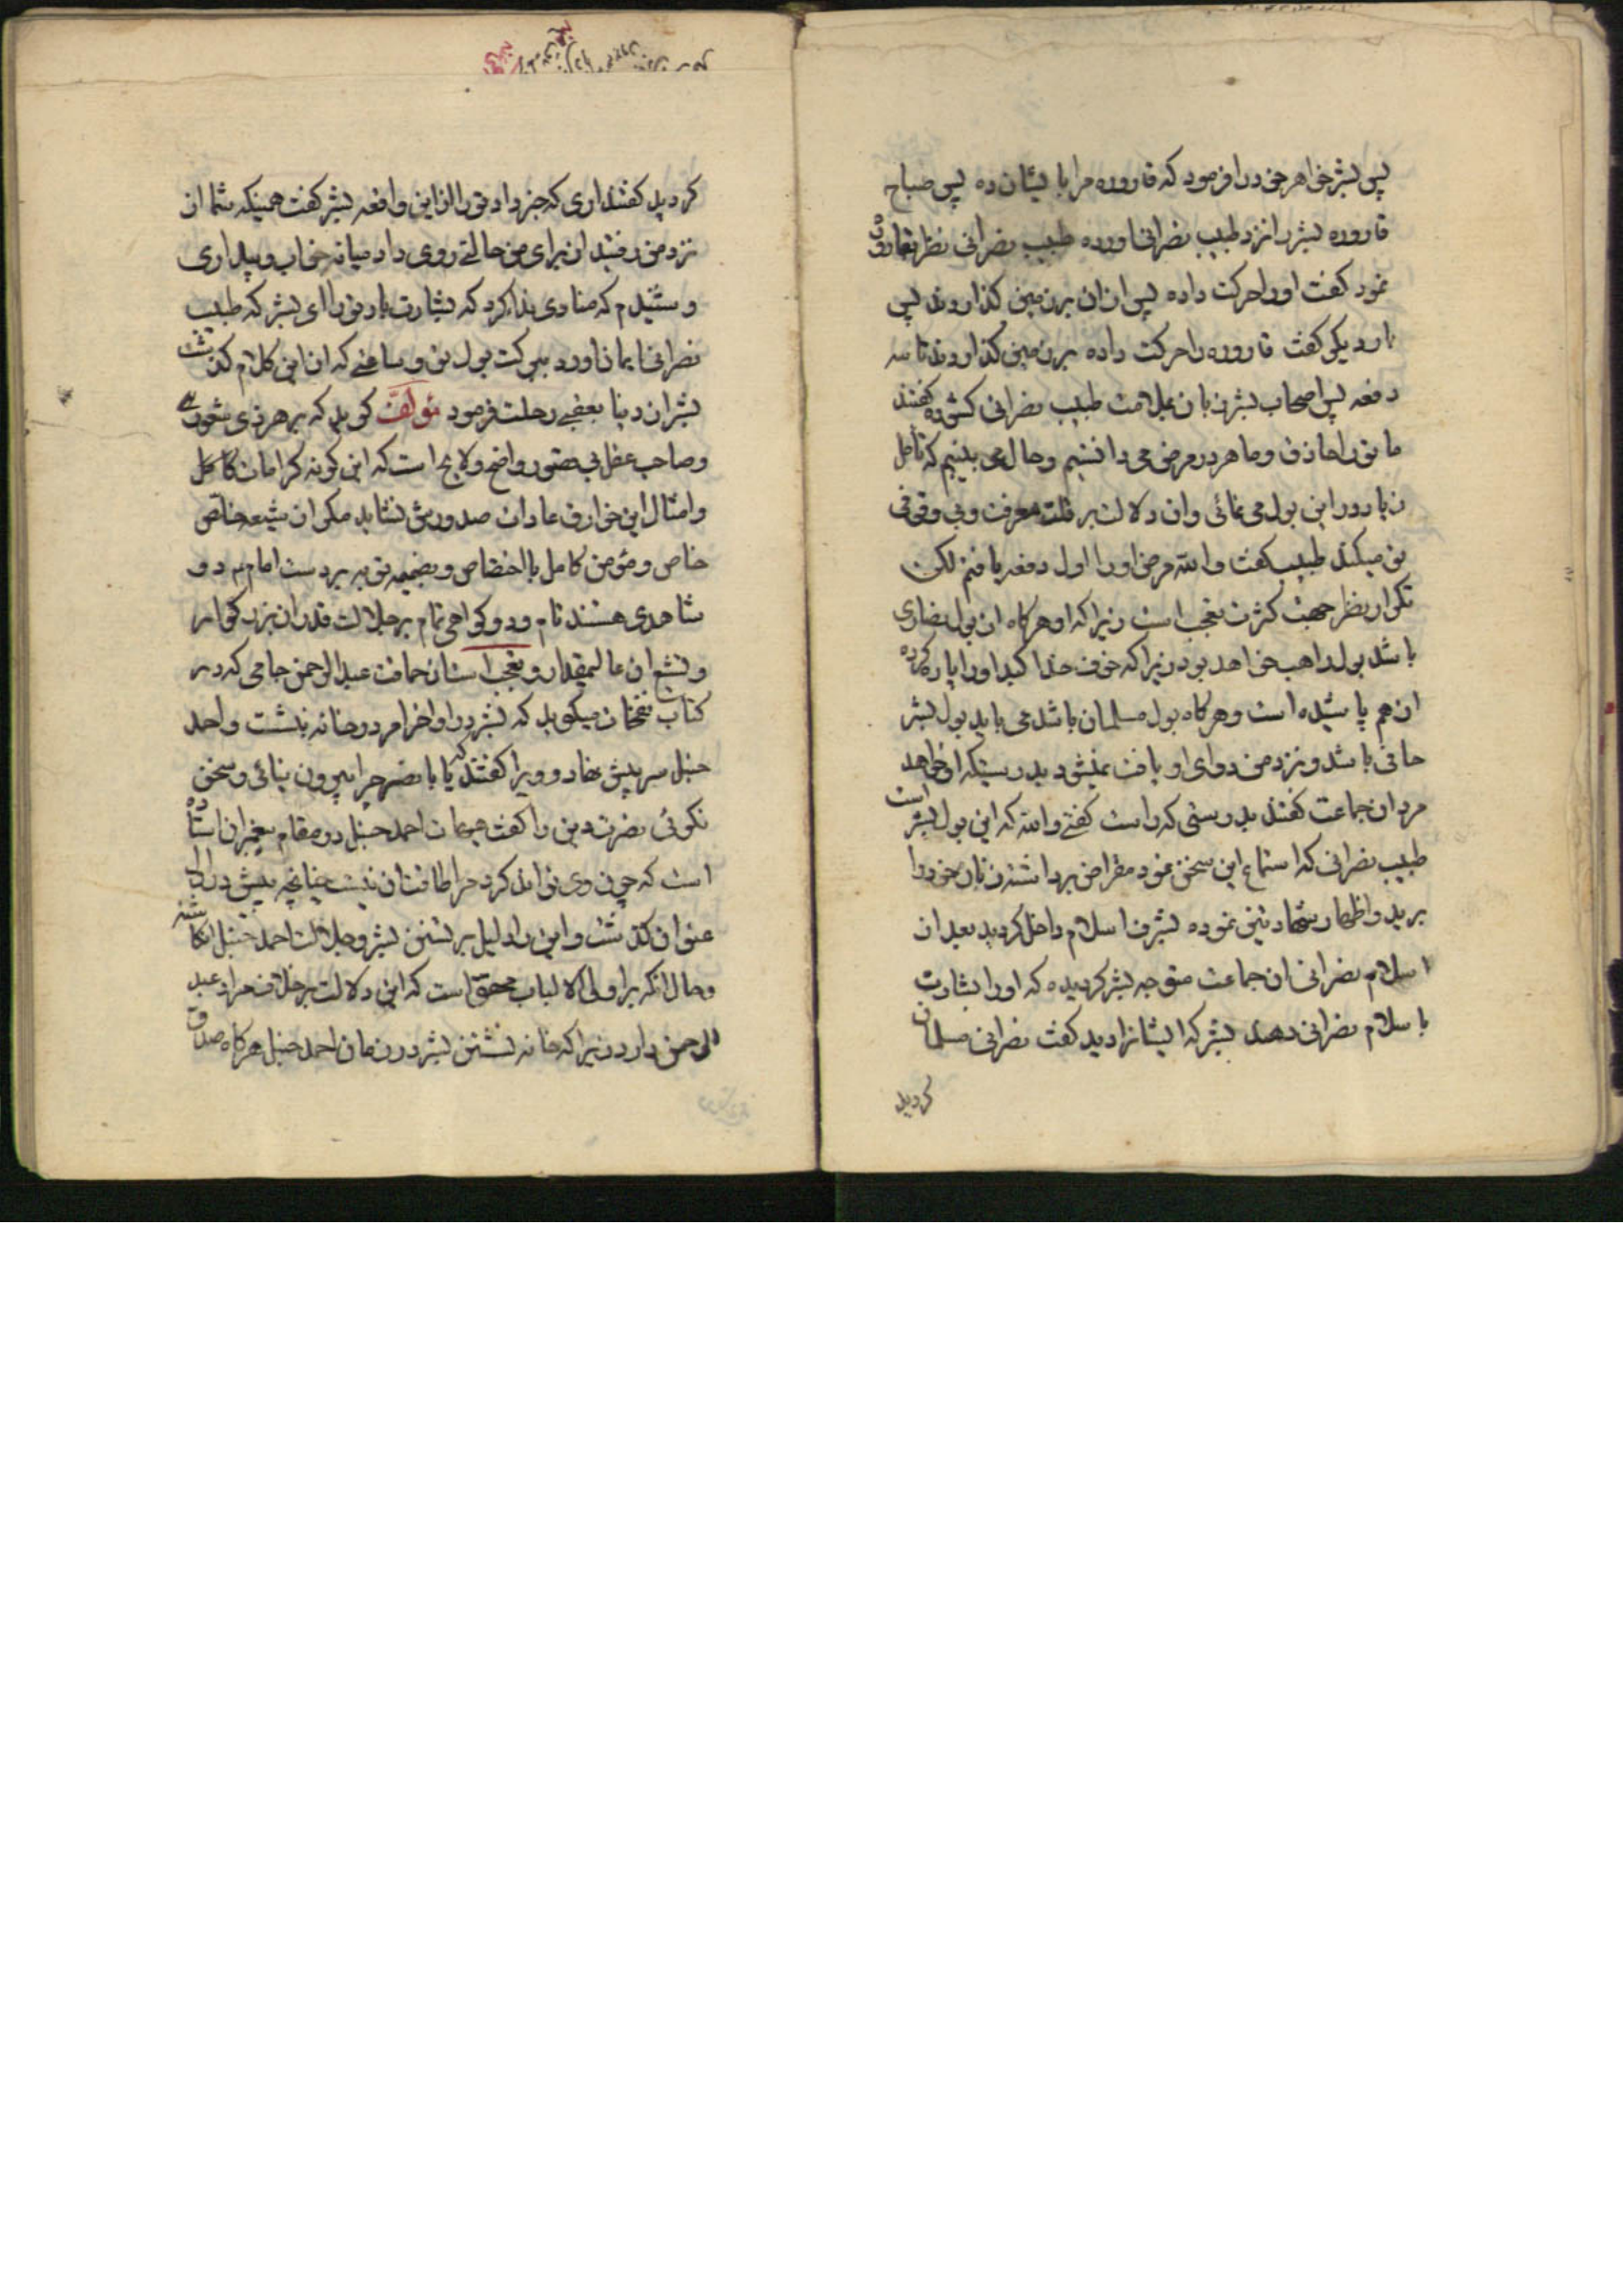 پس بشر خواهر خود را فرمود که قاروره مرا بایشان ده پس صباح
قاروره بشر را نزد طبیب نصرانی اورده طبیب نصرانی نظر بقاروره
نمود کفت او را حرکت داده پس از ان بر زمین کذاروید پس
بار دیکر کفت قاروره را حرکت داده بر زمین کذاروید تا سه
دفعه پس اصحاب بشر زبان بملامت طبیب نصرانی کشوده کفتند
ما تو را حاذق و ماهر در مرض می دانستیم و حال می بینیم که تامل
زیاد در این بول می نمائی و ان دلالت بر قلت معرفت و بی وقوفی
تو میکند طبیب کفت والله مرض او را اول دفعه یافتم لکن
تکرار نظر جهت کثرت تعجب است زیرا که او هرکاه از بول نصاری
باشد بول راهب خواهد بود زیرا که خوف خدا کبد او را پاره کرده
از هم پاشیده است و هرکاه بول مسلمان باشد می باید بول بشر
حافی باشد و نزد من دوای او یافت نمیشود بدرستیکه او خواهد
مرد ان جماعت کفتند بدرستی که راست کفتی والله که این بول بشر است
طبیب نصرانی که استماع این سخن نمود مقراض برداشته زنار خود را
برید و اظهار شهادتین نموده بشرف اسلام داخل کردید بعد از
اسلام نصرانی ان جماعت متوجه بشر کردیده که او را بشارت
باسلام نصرانی دهند بشر که ایشانرا دید کفت نصرانی مسلمان
کردید
کردید کفتند اری که خبر داد تو را از این واقعه بشر کفت همینکه شما از
نزد من رفتید از برای من حالتی روی داد میانه خواب و بیداری
و شنیدم که منادی ندا کرد که بشارت باد تو را ای بشر که طبیب
نصرانی ایمان اورد ببرکت بول تو و ساعتی که از این کلام کذشت
بشر از دنیا بعقبی رحلت فرمود مؤلف کوید که بر هر ذی شعوری
و صاحب عقل بی قصور واضح و لایح است که این کونه کرامات کامل
و امثال این خوارق عادات صدورش نشاید مکر از شیعه خالص
خاص و مؤمن کامل با اختصاص و بضمیمه توبه بر دست امام دو
شاهدی هستند تام و دو کواهی تمام بر جلالت قدر ان بزرکوار
و تشیع ان عالیمقدار و تعجب است از حماقت عبد الرحمن جامی که در
کتاب نفحات میکوید که بشر در اواخر امر در خانه نشست و احمد
حنبل سر پیش نهاد و ویرا کفتند که یا با نصر چرا بیرون نیائی و سخن
نکوئی نصرت دین را کفت هیهات احمد حنبل در مقام پیغمبران استاده
است که چون وی تواند کرد مرا طاقت ان نیست چنانچه پیش در اول
عنوان کذشت و این را دلیل بر تسنن بشر و جلالت احمد حنبل انکاشته
و حال انکه بر اولی الالباب محقق است که این دلالت بر خلاف مراد عبد
الرحمن دارد زیرا که خانه نشستن بشر در زمان احمد حنبل هرکاه صدق